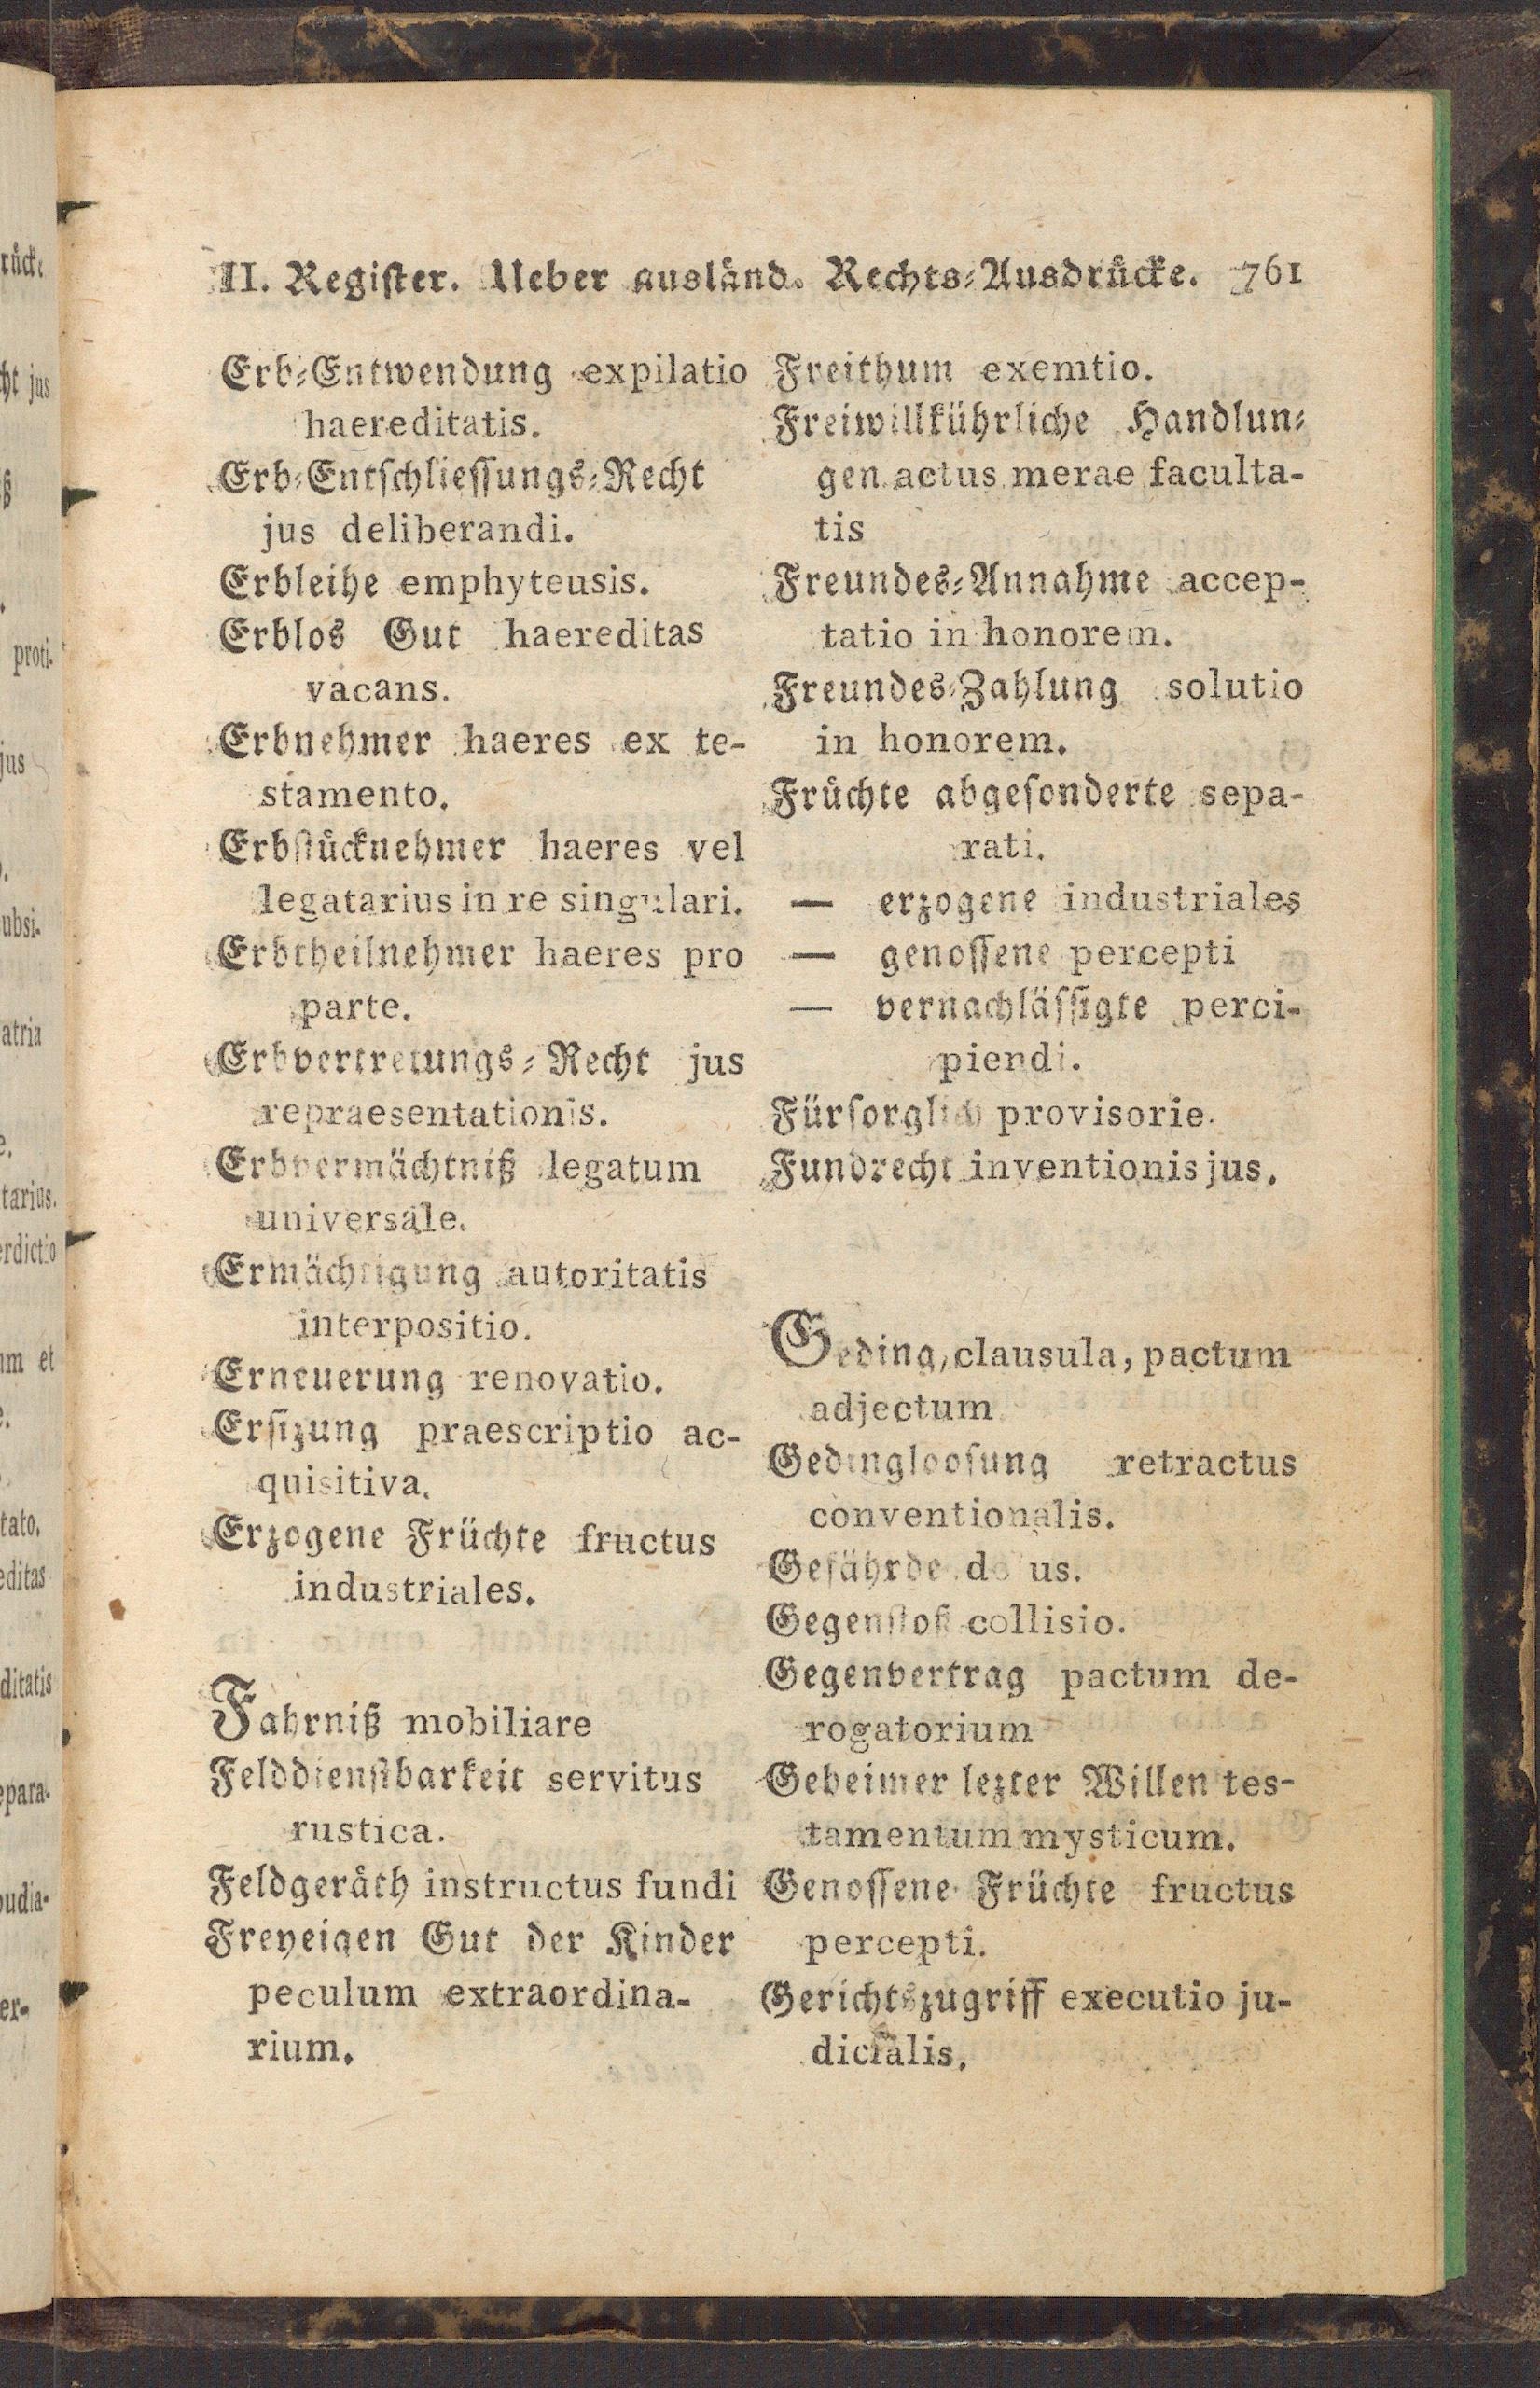 II. Register. Ueber ausländ. Rechts-Ausdrücke. 761
Erb-Entwendung expilatio
haereditatis.
Erb-Entschliessungs-Recht
jus deliberandi.
Erbleihe emphyteusis.
Erblos Gut haereditas
vacans.
Erbnehmer haeres ex te-
stamento.
Erbstücknehmer haeres vel
legatarius in re singulari.
Erbtheilnehmer haeres pro
parte.
Erbvertretungs-Recht jus
repraesentationis.
Erbvermächtniß legatum
universale.
Ermächtigung autoritatis
interpositio.
Erneuerung renovatio.
Ersizung praescriptio ac-
quisitiva.
Erzogene Früchte fructus
industriales.
Fahrniß mobiliare
Felddienstbarkeit servitus
rustica.
Feldgeräth instructus fundi
Freyeigen Gut der Kinder
peculum extraordina-
rium.
Freithum exemtio.
Freiwillkührliche Handlun-
gen actus merae faculta-
tis
Freundes-Annahme accep-
tatio in honorem.
Freundes-Zahlung solutio
in honorem.
Früchte abgesonderte sepa-
rati.
— erzogene industriales
— genossene percepti
— vernachlässigte perci-
piendi.
Fürsorglich provisorie.
Fundrecht inventionis jus.
Geding, clausula, pactum
adjectum
Gedingloosung retractus
conventionalis.
Gefährde do us.
Gegenstoß collisio.
Gegenvertrag pactum de-
rogatorium
Geheimer lezter Willen tes-
tamentum mysticum.
Genossene Früchte fructus
percepti.
Gerichtszugriff executio ju-
dicialis.